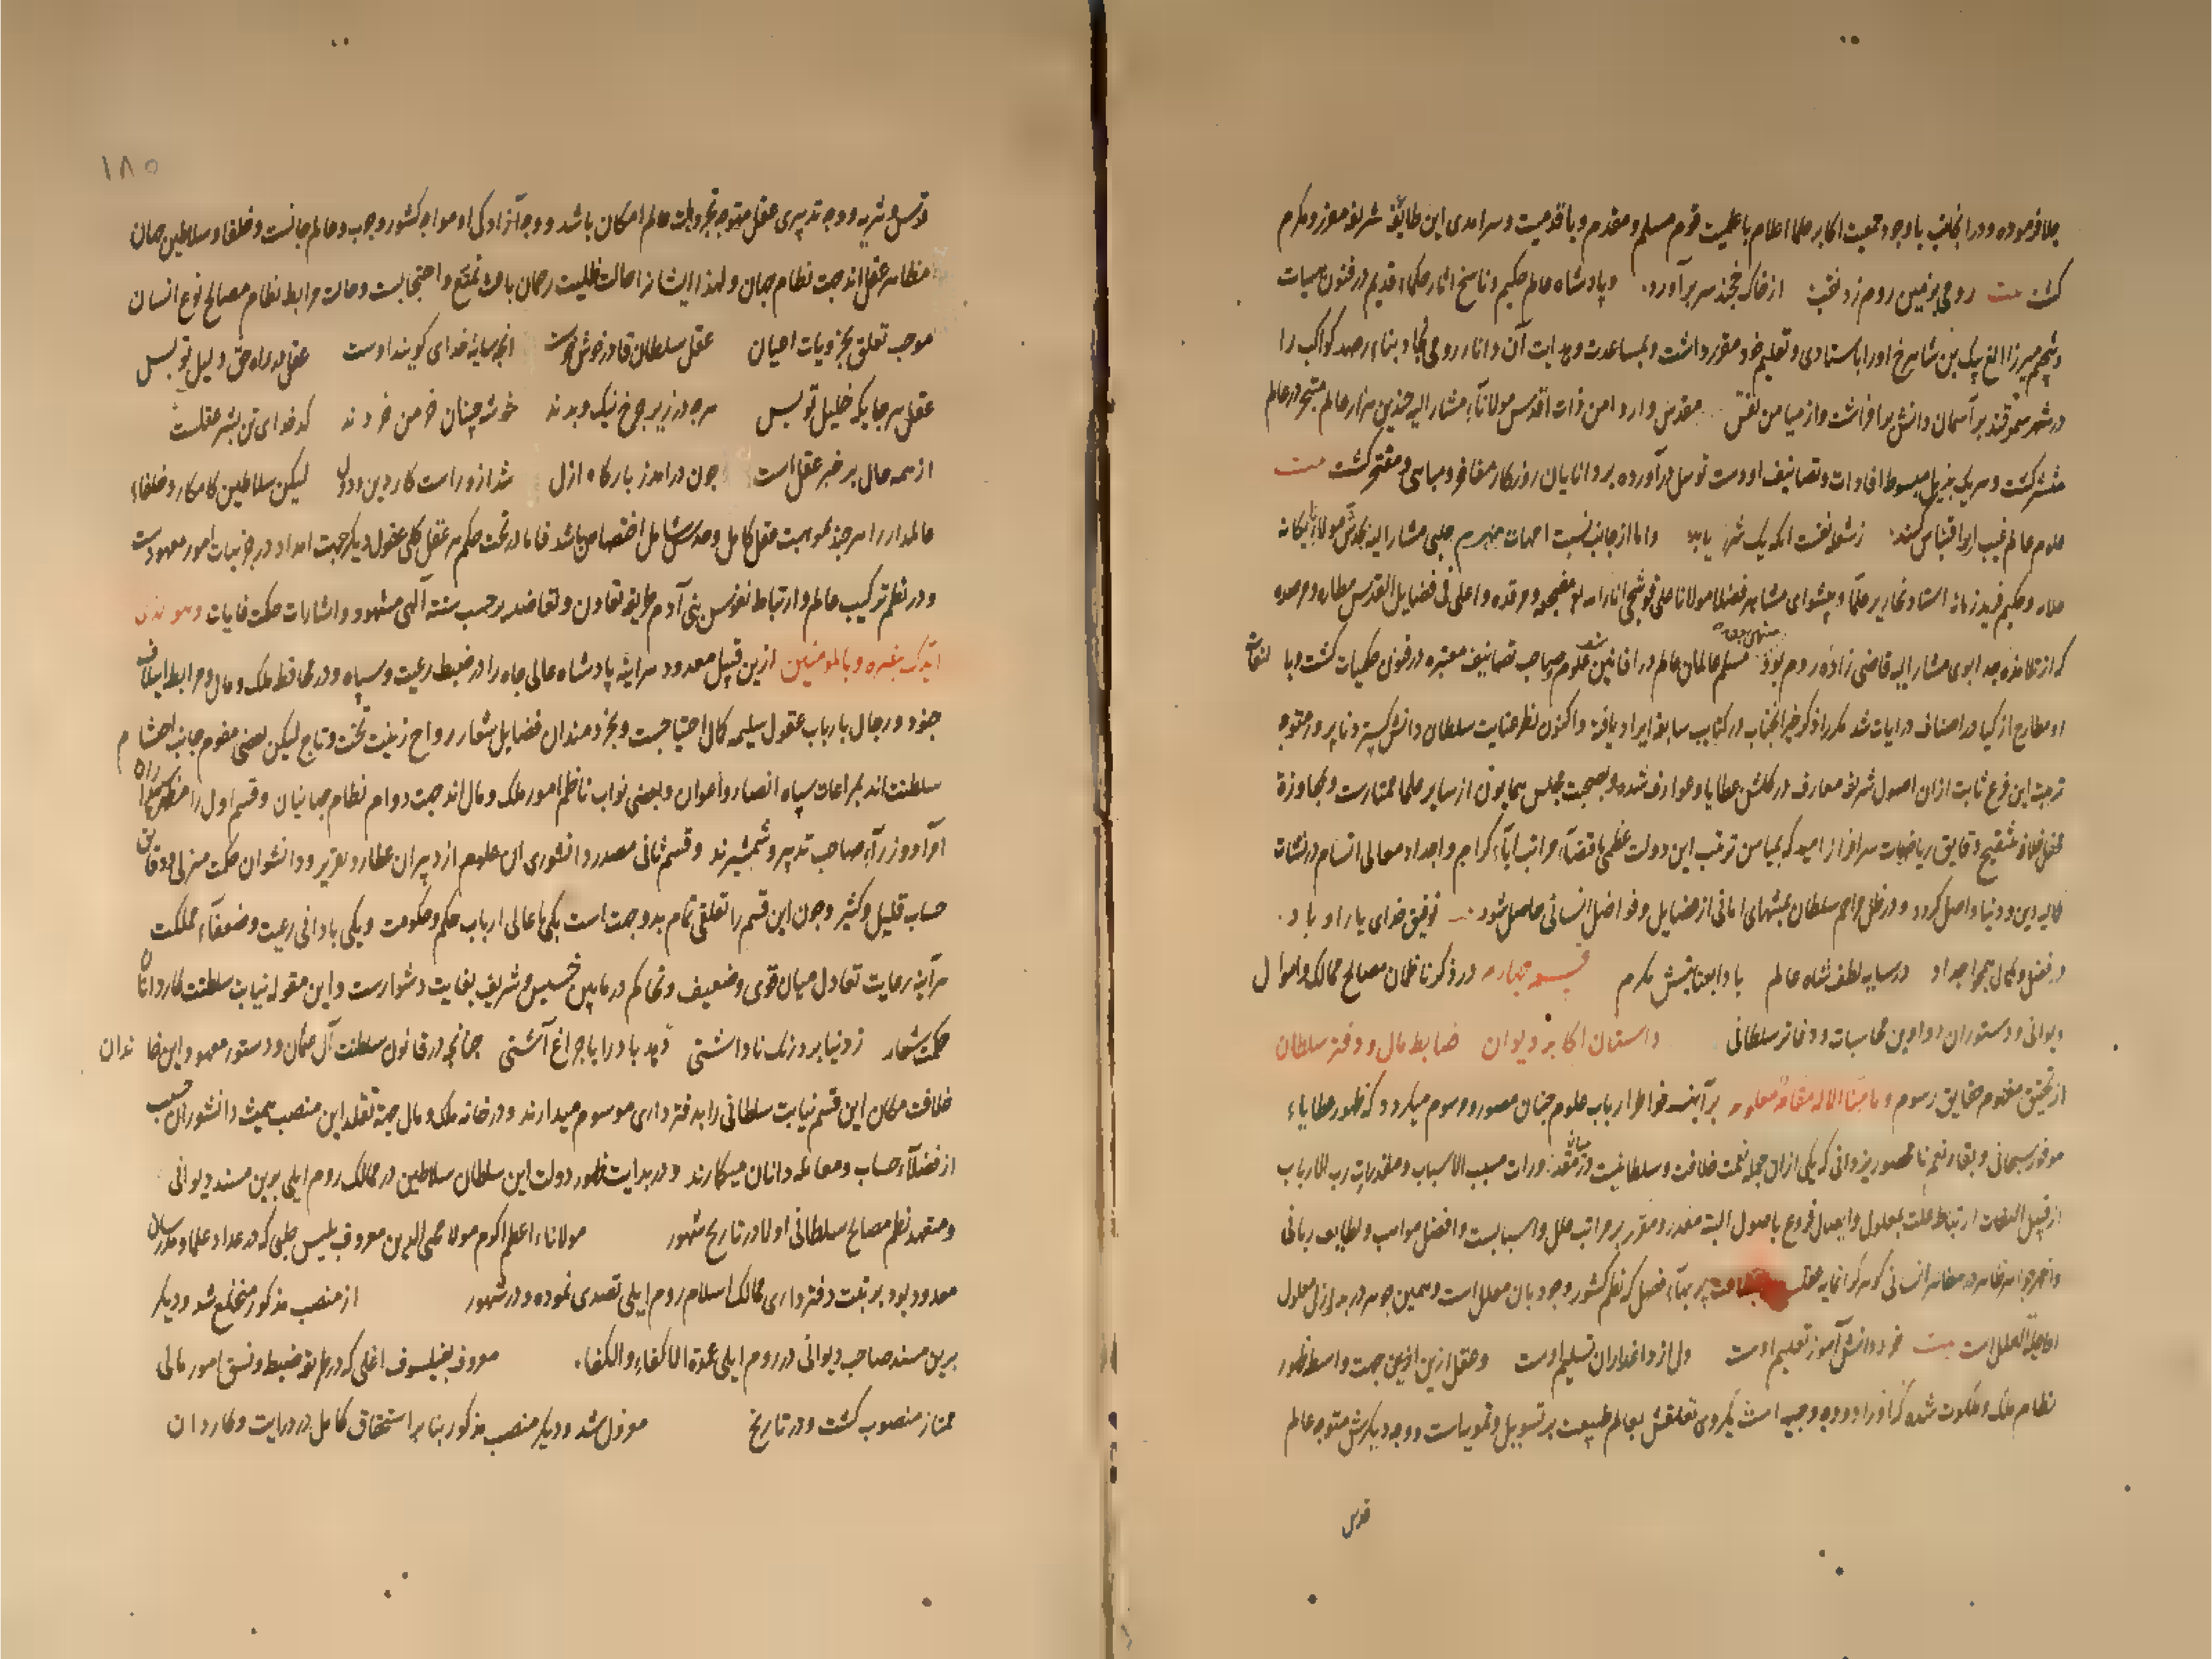 جلا فرموده و در انجانب با وجود جمعیت اکابر علماء اعلام با علمیت قوم مسلم و مقدم و با قدمیت و سرامدی این طایفهٔ شریفه معزز و مکرم
کشت بیت رومی بزمین روم زد تخت از خاک خجند سر برآورد و پادشاه عالم حکیم و ناسخ اثار حکماء قدیم در فنون هییات
و تنجیم میرزا الغ بیک بن شاهرخ او را باستادی و تعلیم خود مقرر داشت و بمساعدت و هدایت آن داناء رومی بنای رصد کواکب را
در شهر سمرقند بر آسمان دانش برافراشت و از میامن نفس مقدس و ارد امن ذات اقدس مولاناء مشار الیه چندین هزار عالم متبحر در عالم
منتشر کشت و هر یک بذیل مبسوط افادات و تصانیف او دست توسل درآورده بر دانایان روزکار مفاخر و مباهی و مفتخر کشت بیت
علوم عالم غیب ار اقتباس کنند ز شعله نفست انکه یک شرر یابد و اما از جانب نسبت امهات چلبی مشار الیه جدش مولاناء یکانه
علامه و حکیم فرید زمانه استاد نحاریر علما و پیشوای مشاهیر فضلا مولانا علی قوشجی انار الله مضجعه و مرقده و اعلی فی فضایل القدس مطاره و مصعده
که از تلامذه جد ابوی مشار الیه قاضی زاده روم بود مسلم عالمان عالم در افانین علوم و صاحب تصانیف معتبره در فنون حکمیات کشت و با
او مطارح ازکیا در اصناف درایات شد مکرر اذکر خیر انجناب در کتایب سابقه ایراد یافته و اکنون نظر عنایت سلطان دانش کستر دنا پرور متوجه
تربیت این فرع ثابت ازان اصول شریفه معارف در کلشن عطایا و عوارف شده و بصحبت مجلس همایون از سایر علما ممتازست و بمجاوزة
محفل خلافت بتنقیح دقایق ریاضیات سرافراز امید که بمیامن تربیت این دولت عظمی باقتضاء مراتب اباء کرام و اجداد معالی اتسام در نشات
عالیه دین و دنیا واصل کردد و در ظل مراحم سلطان بمنتهای امانی از فضایل و فواضل انسانی حاصل شود توفیق خدای یار او باد
در فضل و کمال همچو اجداد در سایه لطف شاه عالم بادا بعنایتش مکرم قسم چهارم در ذکر ناظمان مصالح ممالک و اموال
دیوانی و دستوران دواوین محاسبات و دفاتر سلطانی داستان اکابر دیوان ضابط مال و دفتر سلطان
از تحقیق مفهوم حقایق رسوم و ما منا الا له مقام معلوم بر آینه خواطر ارباب علوم چنان مصور و موسوم میکردد که ظهور عطایاء
موفور سبحانی و بقاء نعیم نا محصور یزدانی که یکی ازان جمله نعمت خلافت و سلطانیست در مقدورات مسبب الاسباب و مقدرات رب الارباب
از قبیل ارتباط علت بمعلول و ایصال فروع باصول البته مقدر و مقرر بر مراتب علل و اسبابست و افضل مواهب و لطایف ربانی
نظم کشور وجود بان معلل است و همین جوهر در بدو ازل معلول
بیت خرد دانش آموز تعلیم اوست دل از داغداران تسلیم اوست و عقل ازین جهت واسطه ظهور
نظام ملک و ملکوت شده که او را دو وجه و حیث است یک روی تعلقش بعالم طبیعت بر تسویل و تمویهاست و وجه دیکرش متوجه عالم
قدس
١٨٥
قدس و تنزیه و وجه تدبیری عقل متوجه بجزویات عالم امکان باشد و وجه آزادکی او مواجه کشور وجوب و عالم جانست و خلفا و سلاطین جهان
مظاهر عقل اند جهت نظام جهان و لهذا ایشانرا حالت ظلیت رحمان باعث تمتع و احتجابست و حالت مرابط نظام مصالح نوع انسان
موجب تعلق بجزویات اعیان عقل سلطان قادر خوش خوست انکه سایهٔ خدای کویند اوست عقل در راه حق دلیل تو بس
عقل هر جایکه خلیل تو بس هر چه در زیر چرخ نیک و بدند خوشه چینان خرمن خردند کدخدای تن بشر عقلست
از همه حال بر خبر عقلست چون درامد ز بارکاه ازل شد ازو راست کار دین و دول لیکن سلاطین کامکار و خلفاء
عالمدار را هر چند موهبت عقل کامل و حدس شامل اختصاص باشد فاما در تحت حکم هر عقل کلی عقول دیکر جهت امداد در جزییات امور معهودست
و در نظم ترکیب عالم و ارتباط نفوس بنی آدم طریق تعاون و تعاضد بر حسب سنة الهی مشهود و اشارات حکمت غایات و هو الذی
ایدک بنصره و بالمومنین ازین قبیل معدود هراینه پادشاه عالی جاه را در ضبط رعیت و سپاه و در محافظه ملک و مال و مرابط اسلاف
جنود و رجال بارباب عقول سلیمه کمال احتیاجست و بخردمندان فضایل شعار رواج زینت تخت و تاج لیکن بعضی مفهوم جانب احتشام
سلطنت اند بمراعات سپاه انصار و اعوان و بعضی نواب ناظم امور ملک و مال اند جهت دوام نظام جهانیان و قسم اول را
امرا و وزراء صاحب تدبیر و شمشیرند و قسم ثانی مصدر دانشوری اهل علوم از دبیران عطارد تحریر و دانشوران حکمت منزلی و دقایق
حساب قلیل و کثیر و چون این قسم را تعلقی تمام بدو جهت است یکی با عالی ارباب حکم و حکومت و یکی بادانی رعیت و ضعفاء مملکت
هرآینه رعایت تعادل میان قوی و ضعیف و تحاکم در مابین خسیس و شریف بغایت دشوارست و این مقوله نیابت سلطنت کاردانان
حکمت شعار ز دنیا بروزنک ناداشتی دهد باد را با چراغ آشتی چنانچه در قانون سلطنت آل عثمان و دستور معهود این خاندان
خلافت مکان این قسم نیابت سلطانی را بدفترداری موسوم میدارند و در خانه ملک و مال جهة تقلد این منصب همیشه دانشوران
از فضلاء حساب و معامله دانان میکمارند و در بدایت ظهور دولت این سلطان سلاطین در ممالک روم ایلی برین مسند دیوانی
و متعهد نظم مصالح سلطانی اولا در تاریخ شهور مولاناء اعظم اکرم مولا محیی الدین معروف بلیس چلبی که در عداد علما و مدرسان
معدود بود برتبت دفترداری ممالک اسلام روم ایلی تصدی نموده و در شهور از منصب مذکور منخلع شد و دیکر
برین مسند صاحب دیوانی در روم ایلی عمدة الاکفاء و الکفاء معروف بفیلسوف اغلی که در طریق ضبط و نسق امور مالی
ممتاز منصوب کشت و در تاریخ معزول شد و دیکر منصب مذکور بنا بر استحقاق کامل در درایت و کاردان